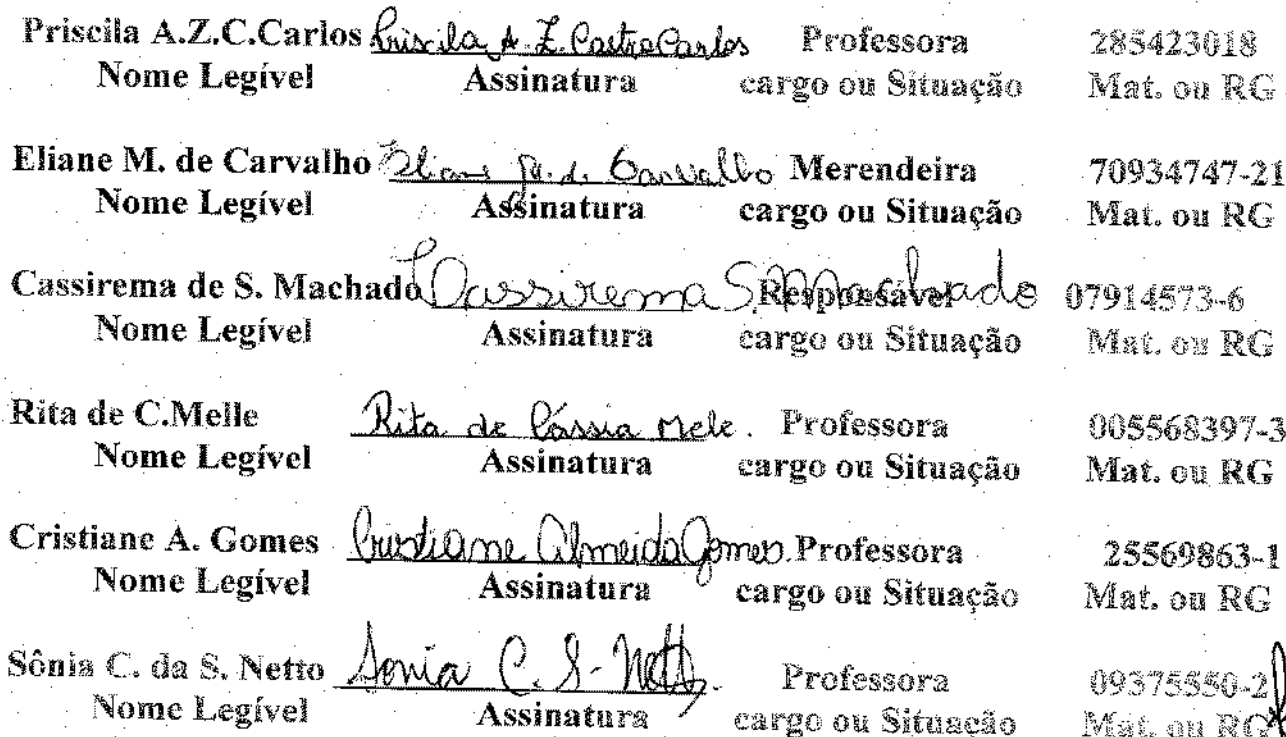 Priscila A.Z.C.Carlos Priscila A. Z. Castro Carlos Professora 285423018
Nome Legível Assinatura cargo ou Situação Mat. ou RG
Eliane M. de Carvalho Eliane M. de Carvalho Merendeira 70934747-21
Nome Legível Assinatura cargo ou Situação Mat. ou RG
Cassirema de S. Machado Cassirema S. Machado Responsável 07914573-6
Nome Legível Assinatura cargo ou Situação Mat. ou RG
Rita de C.Melle Rita de Cássia Mele. Professora 005568397-3
Nome Legível Assinatura cargo ou Situação Mat. ou RG
Cristiane A. Gomes Cristiane Almeida Gomes. Professora 25569863-1
Nome Legível Assinatura cargo ou Situação Mat. ou RG
Sônia C. da S. Netto Sonia C. S- Netto. Professora 09375550-2
Nome Legível Assinatura cargo ou Situação Mat. ou RG